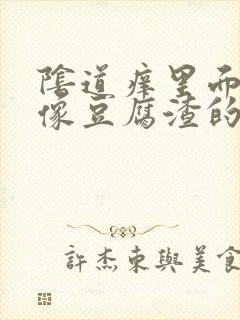 陰道痒里而
像豆腐渣的
許杰東與美食